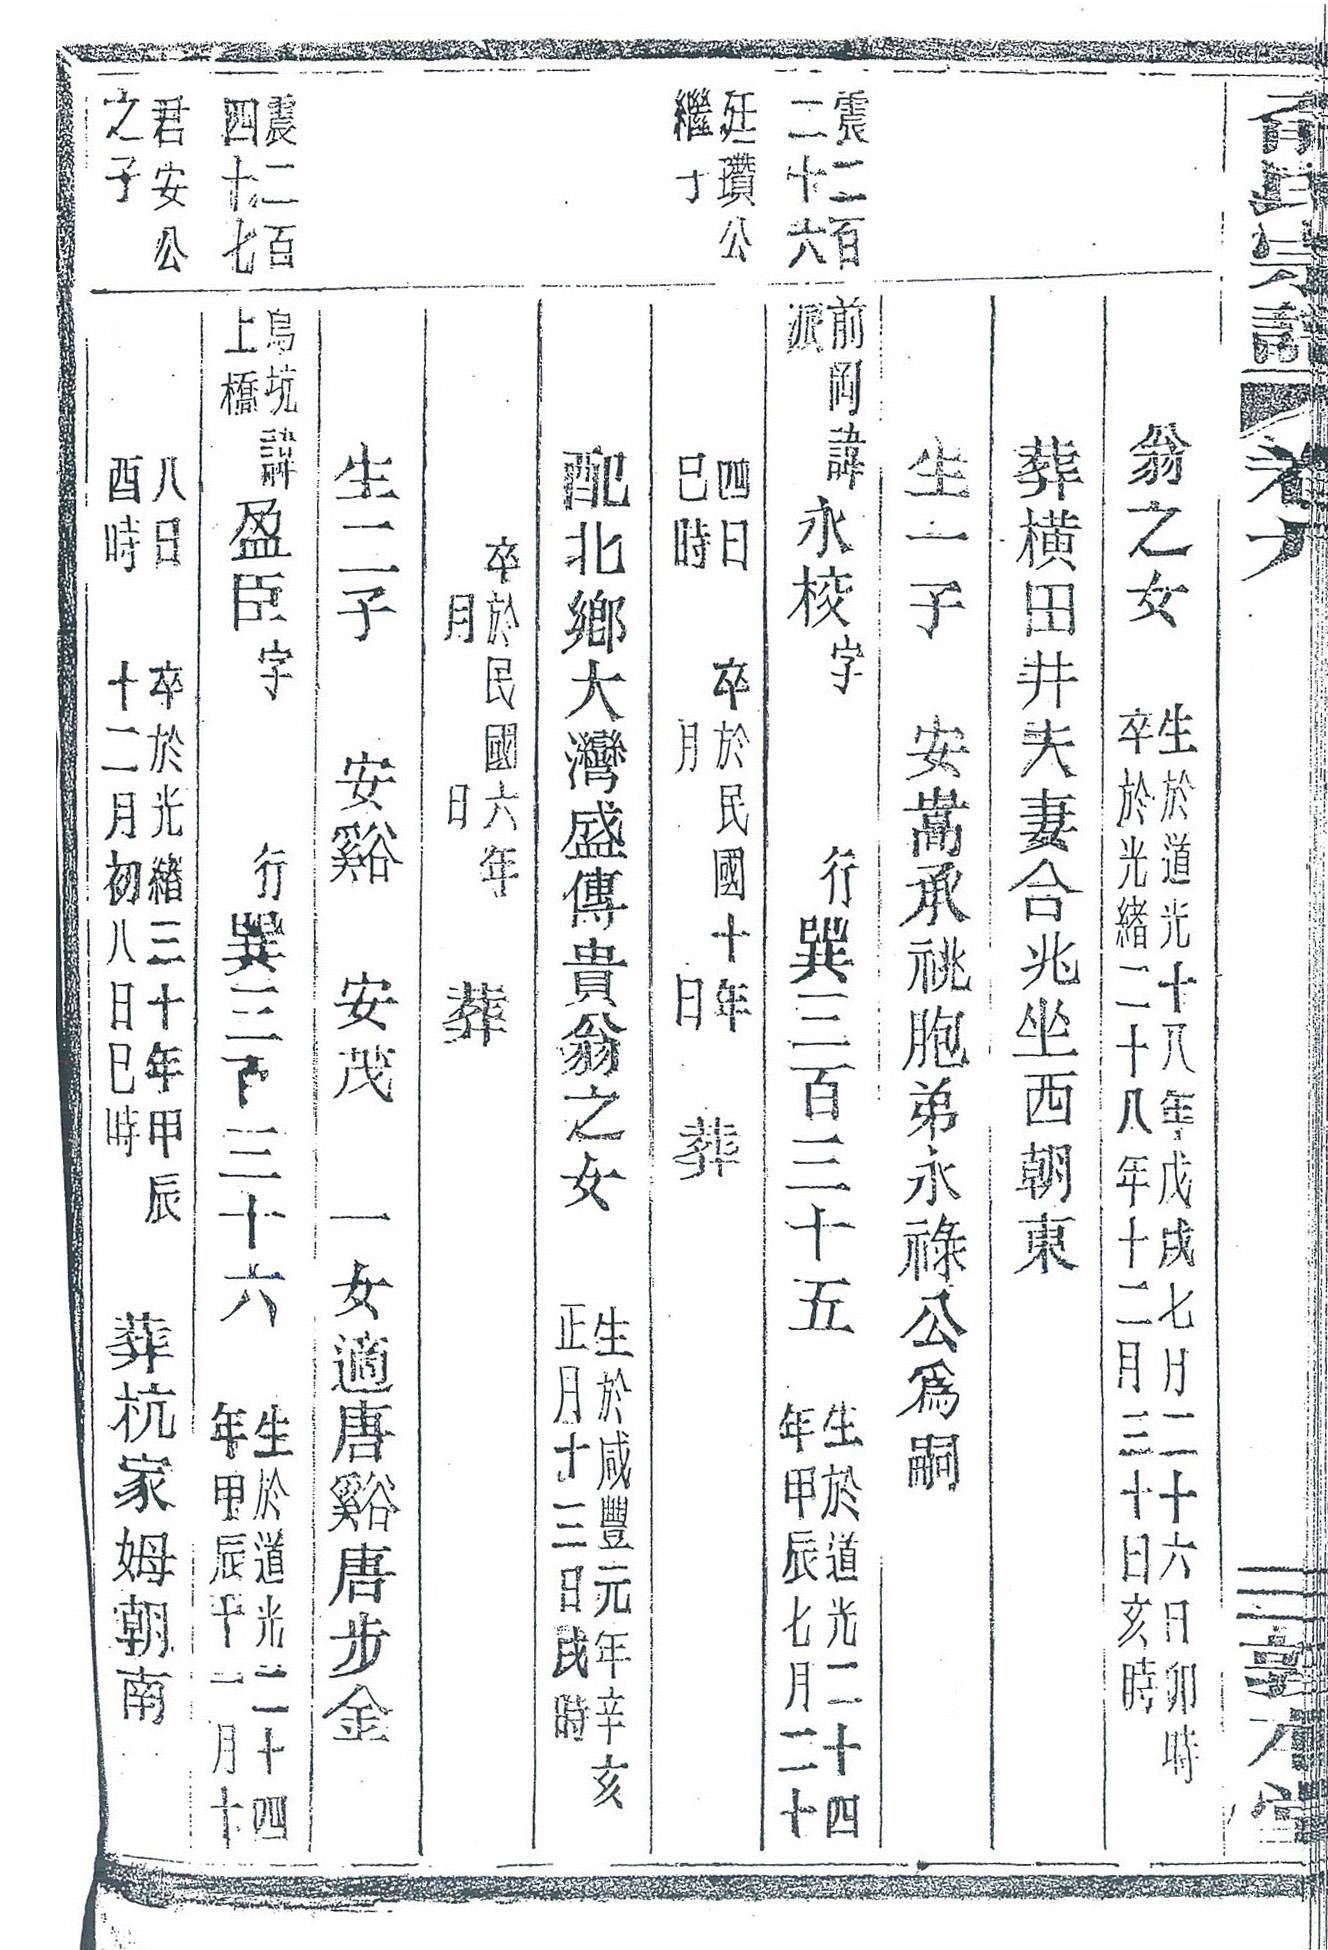 宗譜
卷
敦本堂
翁之女
生於道光十八年戊戌七月二十六日卯時
卒於光緒二十八年十二月三十日亥時
葬橫田井夫妻合兆坐西朝東
生一子 安嵩承祧胞弟永祿公為嗣
震二百
二十六
前岡諱
派
永校
字
行
巽三百三十五
生於道光二十四
年甲辰七月二十
廷瓚公
繼子
四日
巳時
卒於民國十年
月 日
葬
配北鄉大灣盛傳貴翁之女
生於咸豐元年辛亥
正月十三日戌時
卒於民國六年
月 日
葬
生二子 安谿 安茂 一女適唐谿唐步金
震二百
四十七
烏坑諱
上橋
盈臣
字
行
巽三百三十六
生於道光二十四
年甲辰十一月十
君安公
之子
八日
酉時
卒於光緒三十年甲辰
十二月初八日巳時
葬杭家姆朝南